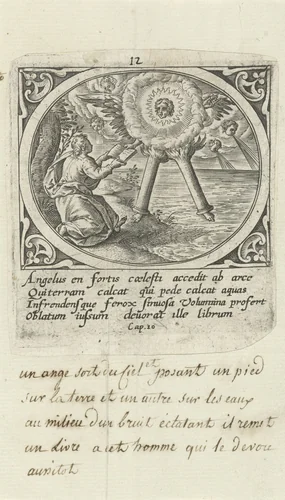 12
Angelus en fortis cœlesti accedit ab arce
Qui terram calcat qui pede calcat aquas
Infrendensque ferox sinuosa Volumina profert
Oblatum iussum deuorat ille librum
Cap. 10
un ange sort du ciel et posant un pied
sur la terre et un autre sur les eaux
au milieu d'un bruit éclatant il remet
un livre a cet homme qui le devore
aussitot